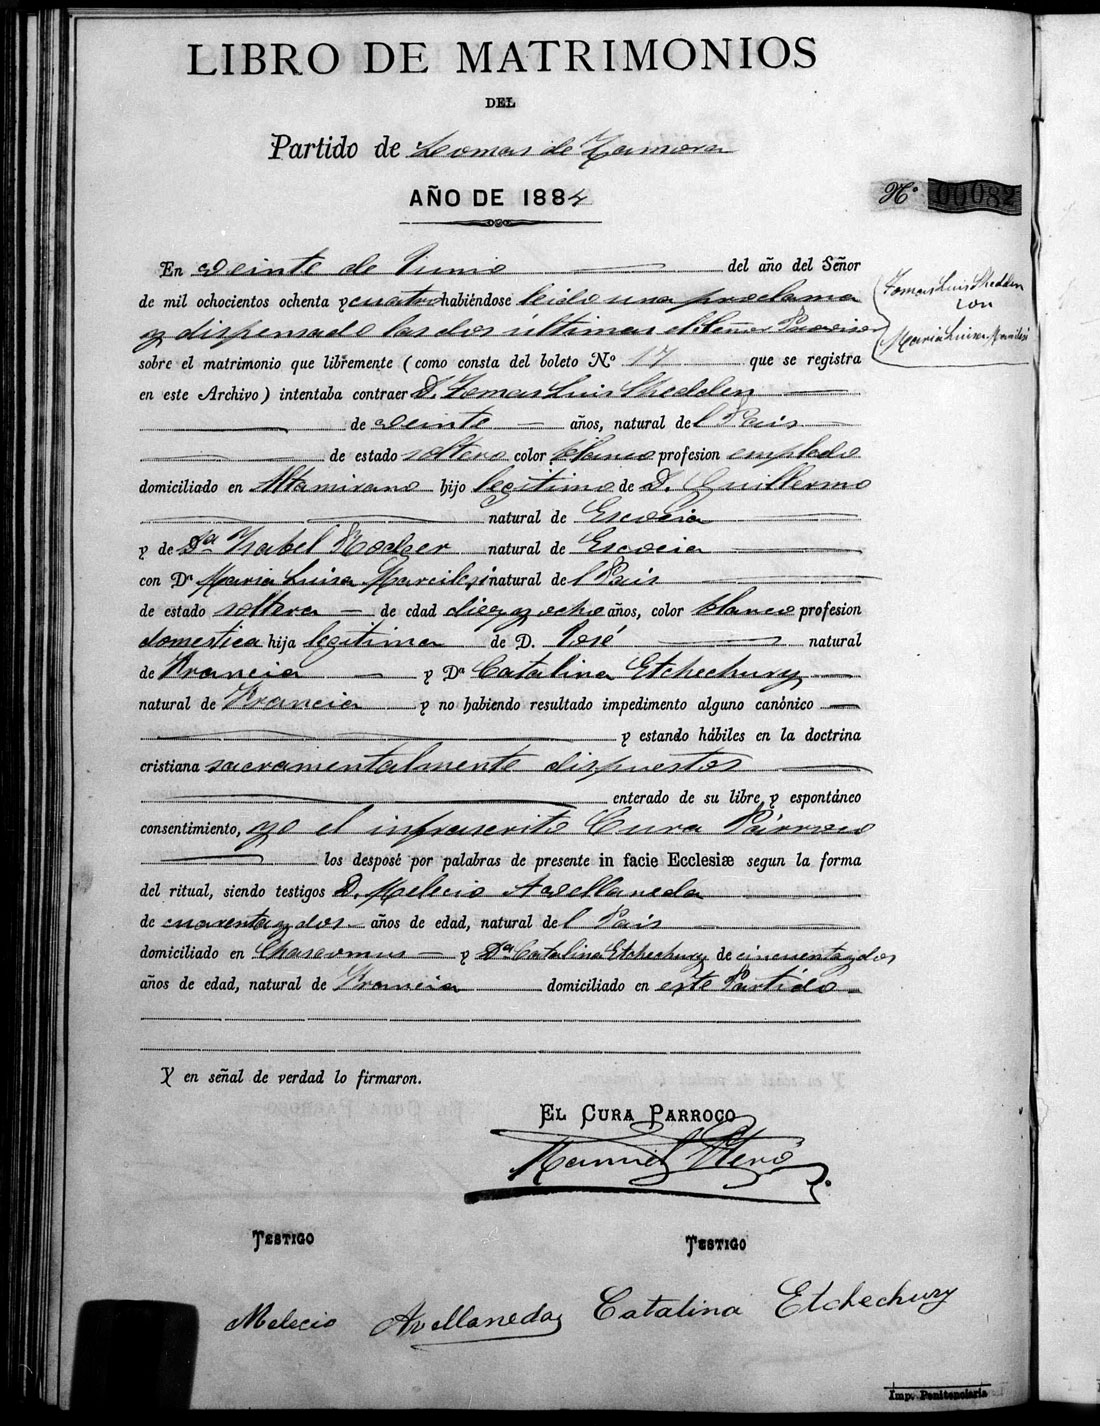 LIBRO DE MATRIMONIOS
DEL
Partido de Lomas de Zamora
AÑO DE 1884
Nº 00082
En veinte de Junio del año del Señor
de mil ochocientos ochenta y cuatro habiéndose leido una proclama
y dispensado las dos últimas el Señor Provisor
Tomas Luis Shedden
con
Maria Luisa
sobre el matrimonio que libremente (como consta del boleto Nº 17 que se registra
en este Archivo) intentaba contraer D. Tomas Luis Shedden
de veinte años, natural del Pais
de estado soltero color blanco profesion empleado
domiciliado en Altamirano hijo legitimo de D. Guillermo
natural de Escocia
y de Da Ysabel natural de Escocia
con Da Maria Luisa natural del Pais
de estado soltera de edad diez y ocho años, color blanco profesion
domestica hija legitima de D. José natural
de Francia y Da Catalina Etchechury
natural de Francia y no habiendo resultado impedimento alguno canónico
y estando hábiles en la doctrina
cristiana sacramentalmente dispuestos
enterado de su libre y espontáneo
consentimiento, yo el infrascrito Cura Párroco
los desposé por palabras de presente in facie Ecclesiæ segun la forma
del ritual, siendo testigos D. Melecio Avellaneda
de cuarenta y dos años de edad, natural del Pais
domiciliado en Chascomus y Da Catalina Etchechury de cincuenta y dos
años de edad, natural de Francia domiciliado en este Partido
Y en señal de verdad lo firmaron.
EL CURA PARROCO
Manuel
TESTIGO TESTIGO
Melecio Avellaneda Catalina Etchechury
Imp. Penitenciaria